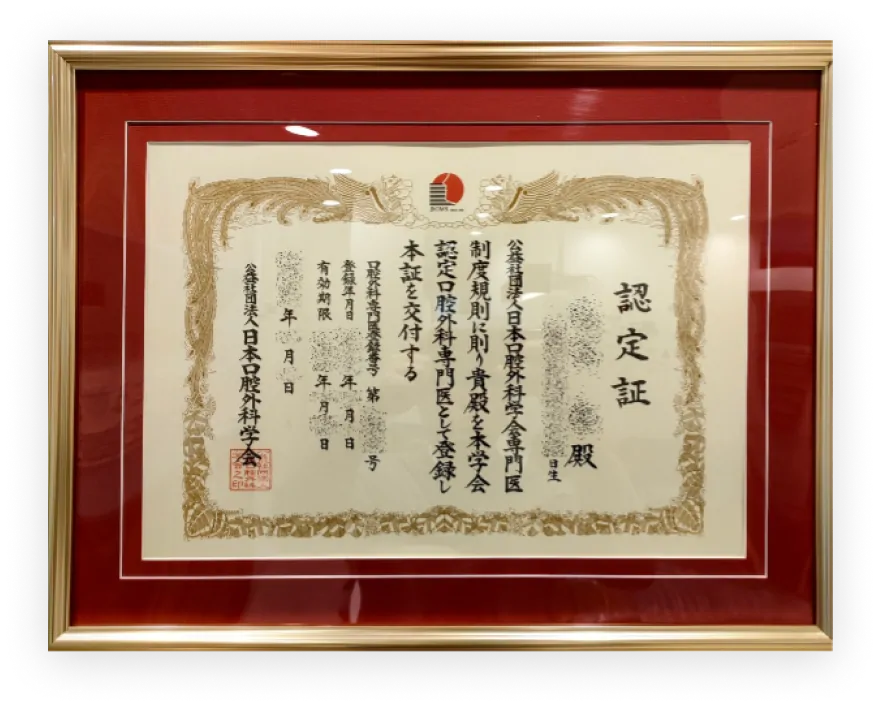 認定証
殿
日生
公益社団法人日本口腔外科学会専門医
制度規則に則り貴殿を本学会
認定口腔外科専門医として登録し
本証を交付する
口腔外科専門医登録番号 第 号
登録年月日 年 月 日
有効期限 年 月 日
年 月 日
公益社団法人日本口腔外科学会